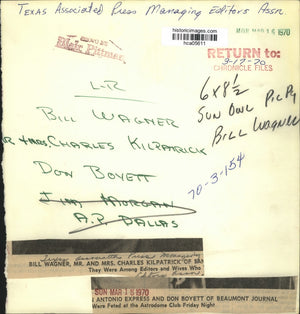 TEXAS ASSOCIATED PRESS MANAGING EDITORS ASSN
historicimages.com
hca09611
MAR 16 1970
Blair Pittman
RETURN to:
3-17-70
CHRONICLE FILES
L-R
6x8½
SUN OWL PIC PG
BILL WAGNER
BILL WAGNER
MR & MRS, CHARLES KILPATRICK
DON BOYETT
JIM MORGAN
A.P. DALLAS
70-3-154
SUN MAR 15 1970
BILL WAGNER, MR. AND MRS. CHARLES KILPATRICK OF SAN
They Were Among Editors and Wives Who
ANTONIO EXPRESS AND DON BOYETT OF BEAUMONT JOURNAL
Were Feted at the Astrodome Club Friday Night